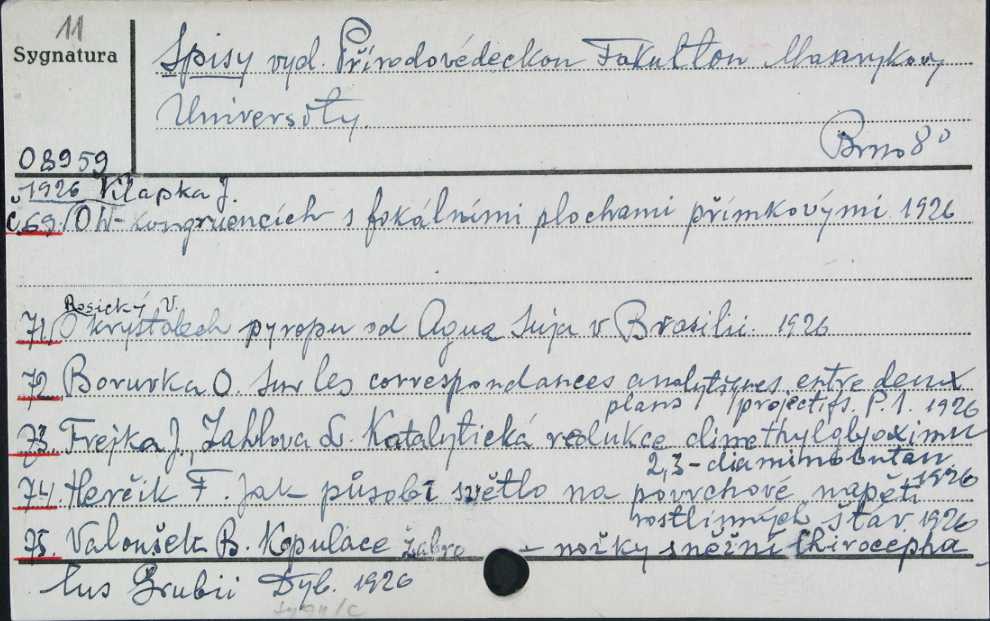 11
Sygnatura
Spisy vyd. Přírodovédeckou Fakulton Masarykovy
University.
Brno 8°
08959
1926 Klapka J.
č.69. O W-kongruencích s fokálními plochami přímkovými 1926
Rosický V.
71. O krystalech pyropu od Agua Suja v Brasilii. 1926
72. Boruvka O. Sur les correspondances analytiques entre deux
plans projectifs. P.1. 1926
73. Frejka J., Zahlova L. Katalytická redukce dimethylglyoximu
2,3-diaminobutan 1926
74. Herčik F. Jak působí světlo na povrchové napětí
rostlinných štav. 1926
75. Valoušek B. Kopulace žabro - nožky sněžní Chirocepha-
lus Grubii Dyb. 1926